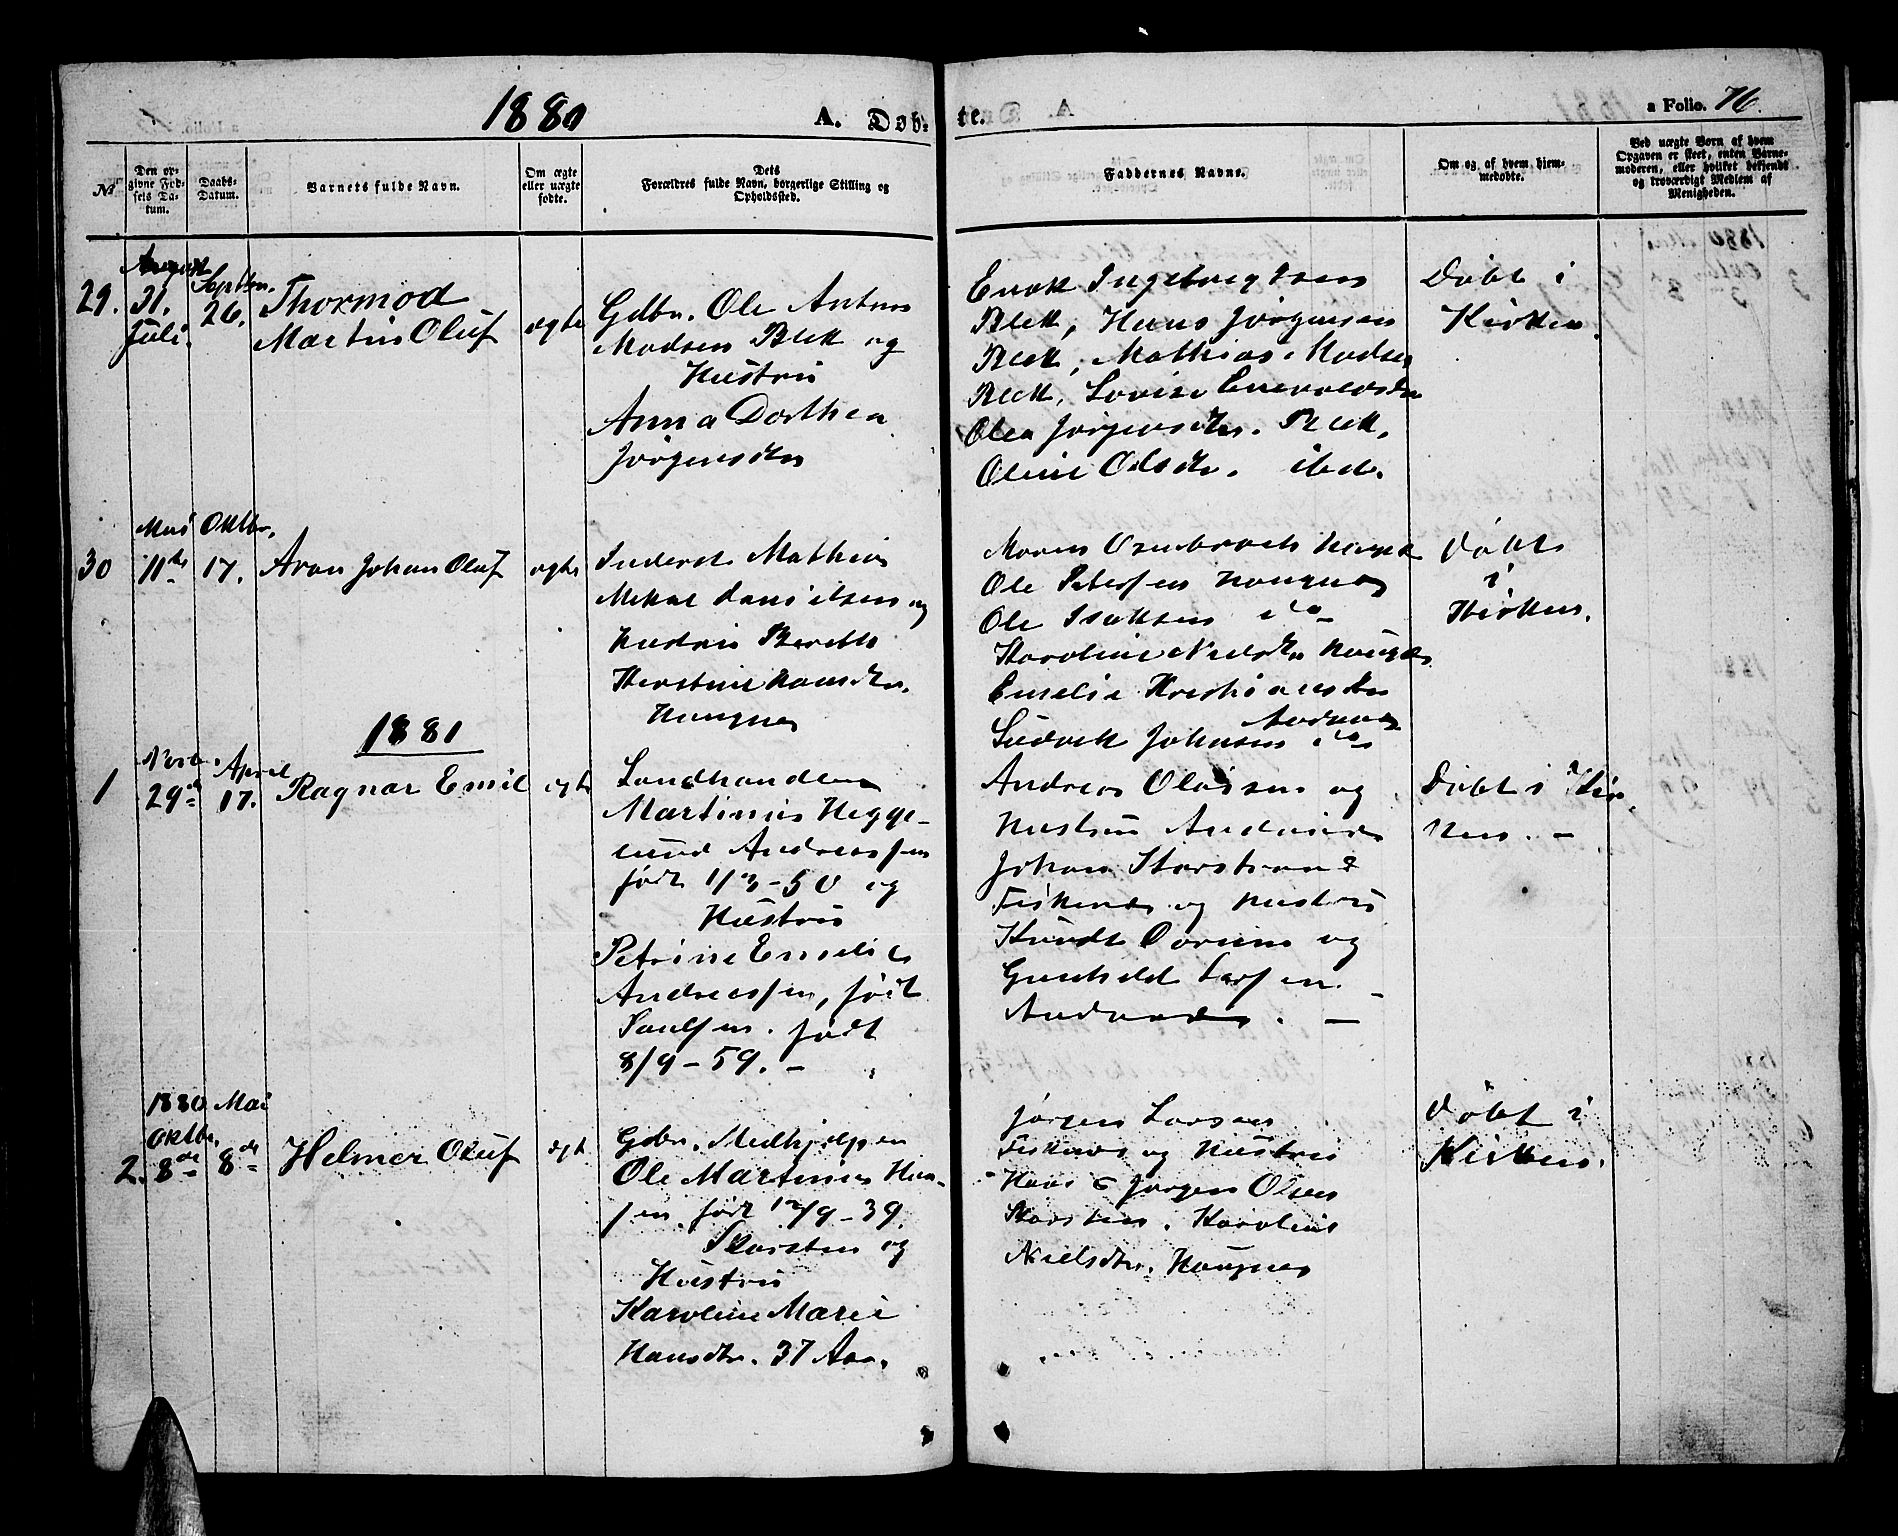 1880
A. Døb-
te.
a Folio. 76
No
Den op-
givne Fød-
sels Da-
tum.
Daabs-
Datum.
Barnets fulde Navn.
Om ægte
eller uægte
fødte.
Dets
Forældres fulde Navn, borgerlige Stilling og
Opholdssted.
Faddernes Navne.
Om og af hvem hjem-
medøbte.
Ved uægte Børn af hvem
Opgaven er skeet, enten Barne-
moderen, eller hvilket bekjendt
og troværdigt Medlem af
Menigheden.
29.
31.
Juli.
Septbr.
26.
Thormod
Martin Oluf
ægte
Gdbr. Ole Anton
Madsen Bleik og
Hustru
Anna Dorthea
Jørgensdtr
Ingebrigtsen
Bleik, Hans Jørgensen
Bleik, Mathias Madsen
Bleik, Lovise
Olea Jørgensdtr. Bleik,
Oline Olsdtr. ibd.
Døbt i
Kirken.
30
Mai
11te
Oktbr.
17.
Aron Johan Oluf
ægte
Inderst Mathias
Mikal Danielsen og
Hustru Berethe
Kerstine Hansdtr.
Haugnes
Ole Petersen Haugnes
Ole Isaksen do
Karoline Nielsdtr Haugnes
Emelie Kristiansdtr
Andenes
Ludvik Johnsen do
Døbt
i
Kirken.
1881
1
Novbr.
29de
April
17.
Ragnar Emil
ægt
Landhandler
Martinus Hegge-
lund Andreassen
født 1/3-50 og
Hustru
Petrine Emelie
Andreassen, født
Paulsen. født
8/9-59. -
Andreas Olaisen og
Hustru Andenes
Johan Storstrand
Fiskenes og Hustru
Knudt og
Gunhild Larsen.
Andenes. -
Døbt i Kir-
ken. -
2.
1880
Oktbr.
8de
Mai
8de
Helmer Oluf
ægt
Gdbr. Medhjelper
Ole Martinus Han-
sen, født 12/9-39.
Skarsten og
Hustru
Karoline Marie
Hansdtr. 37 Aar.
Jørgen Larsen
Fiskenes og Hustru
Jørgen Olsen
Skarsten. Karoline
Nielsdtr. Haugnes
Døbt i
Kirken.